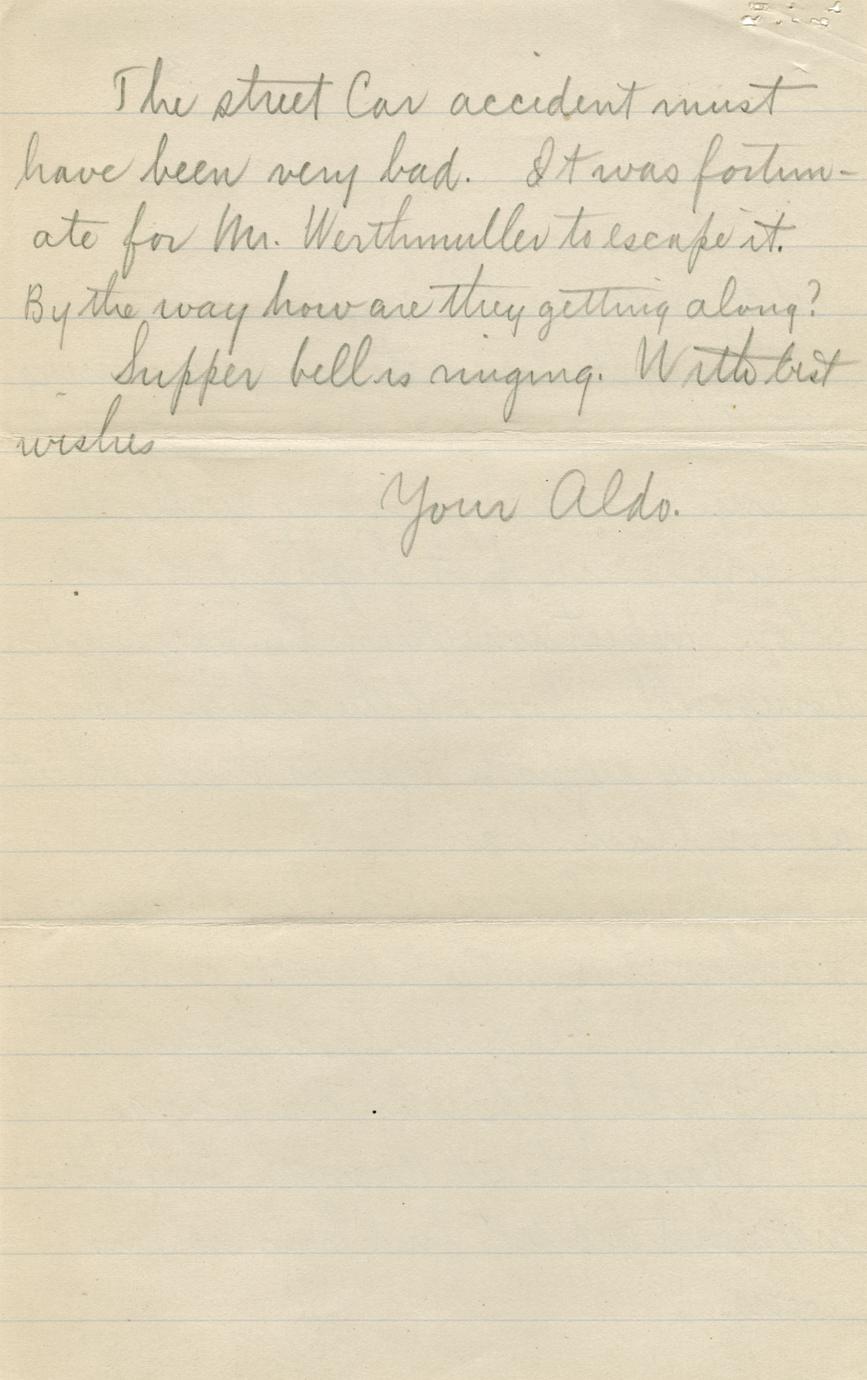 The street Car accident must
have been very bad. It was fortun-
ate for Mr. Werthmuller to escape it.
By the way how are they getting along?
Supper bell is ringing. With best
wishes
Your Aldo.